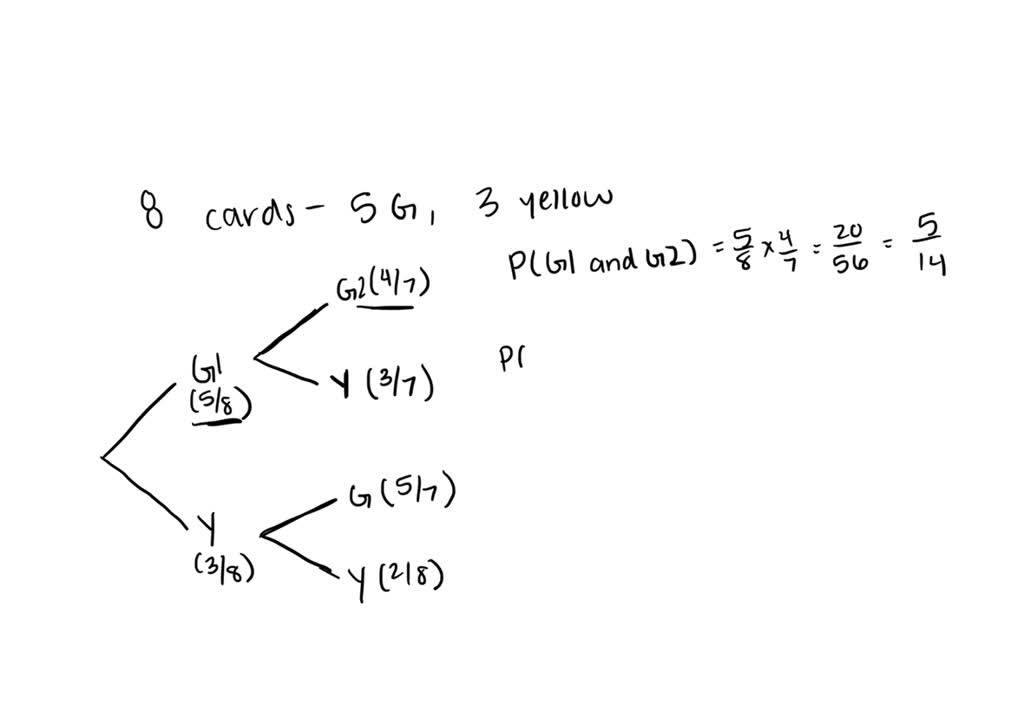 8 cards - 5 G, 3 yellow
P(G1 and G2) = 5/8 x 4/7 = 20/56 = 5/14
G2(4/7)
P(
G1
(5/8)
Y (3/7)
G (5/7)
Y
(3/8)
Y (2/8)